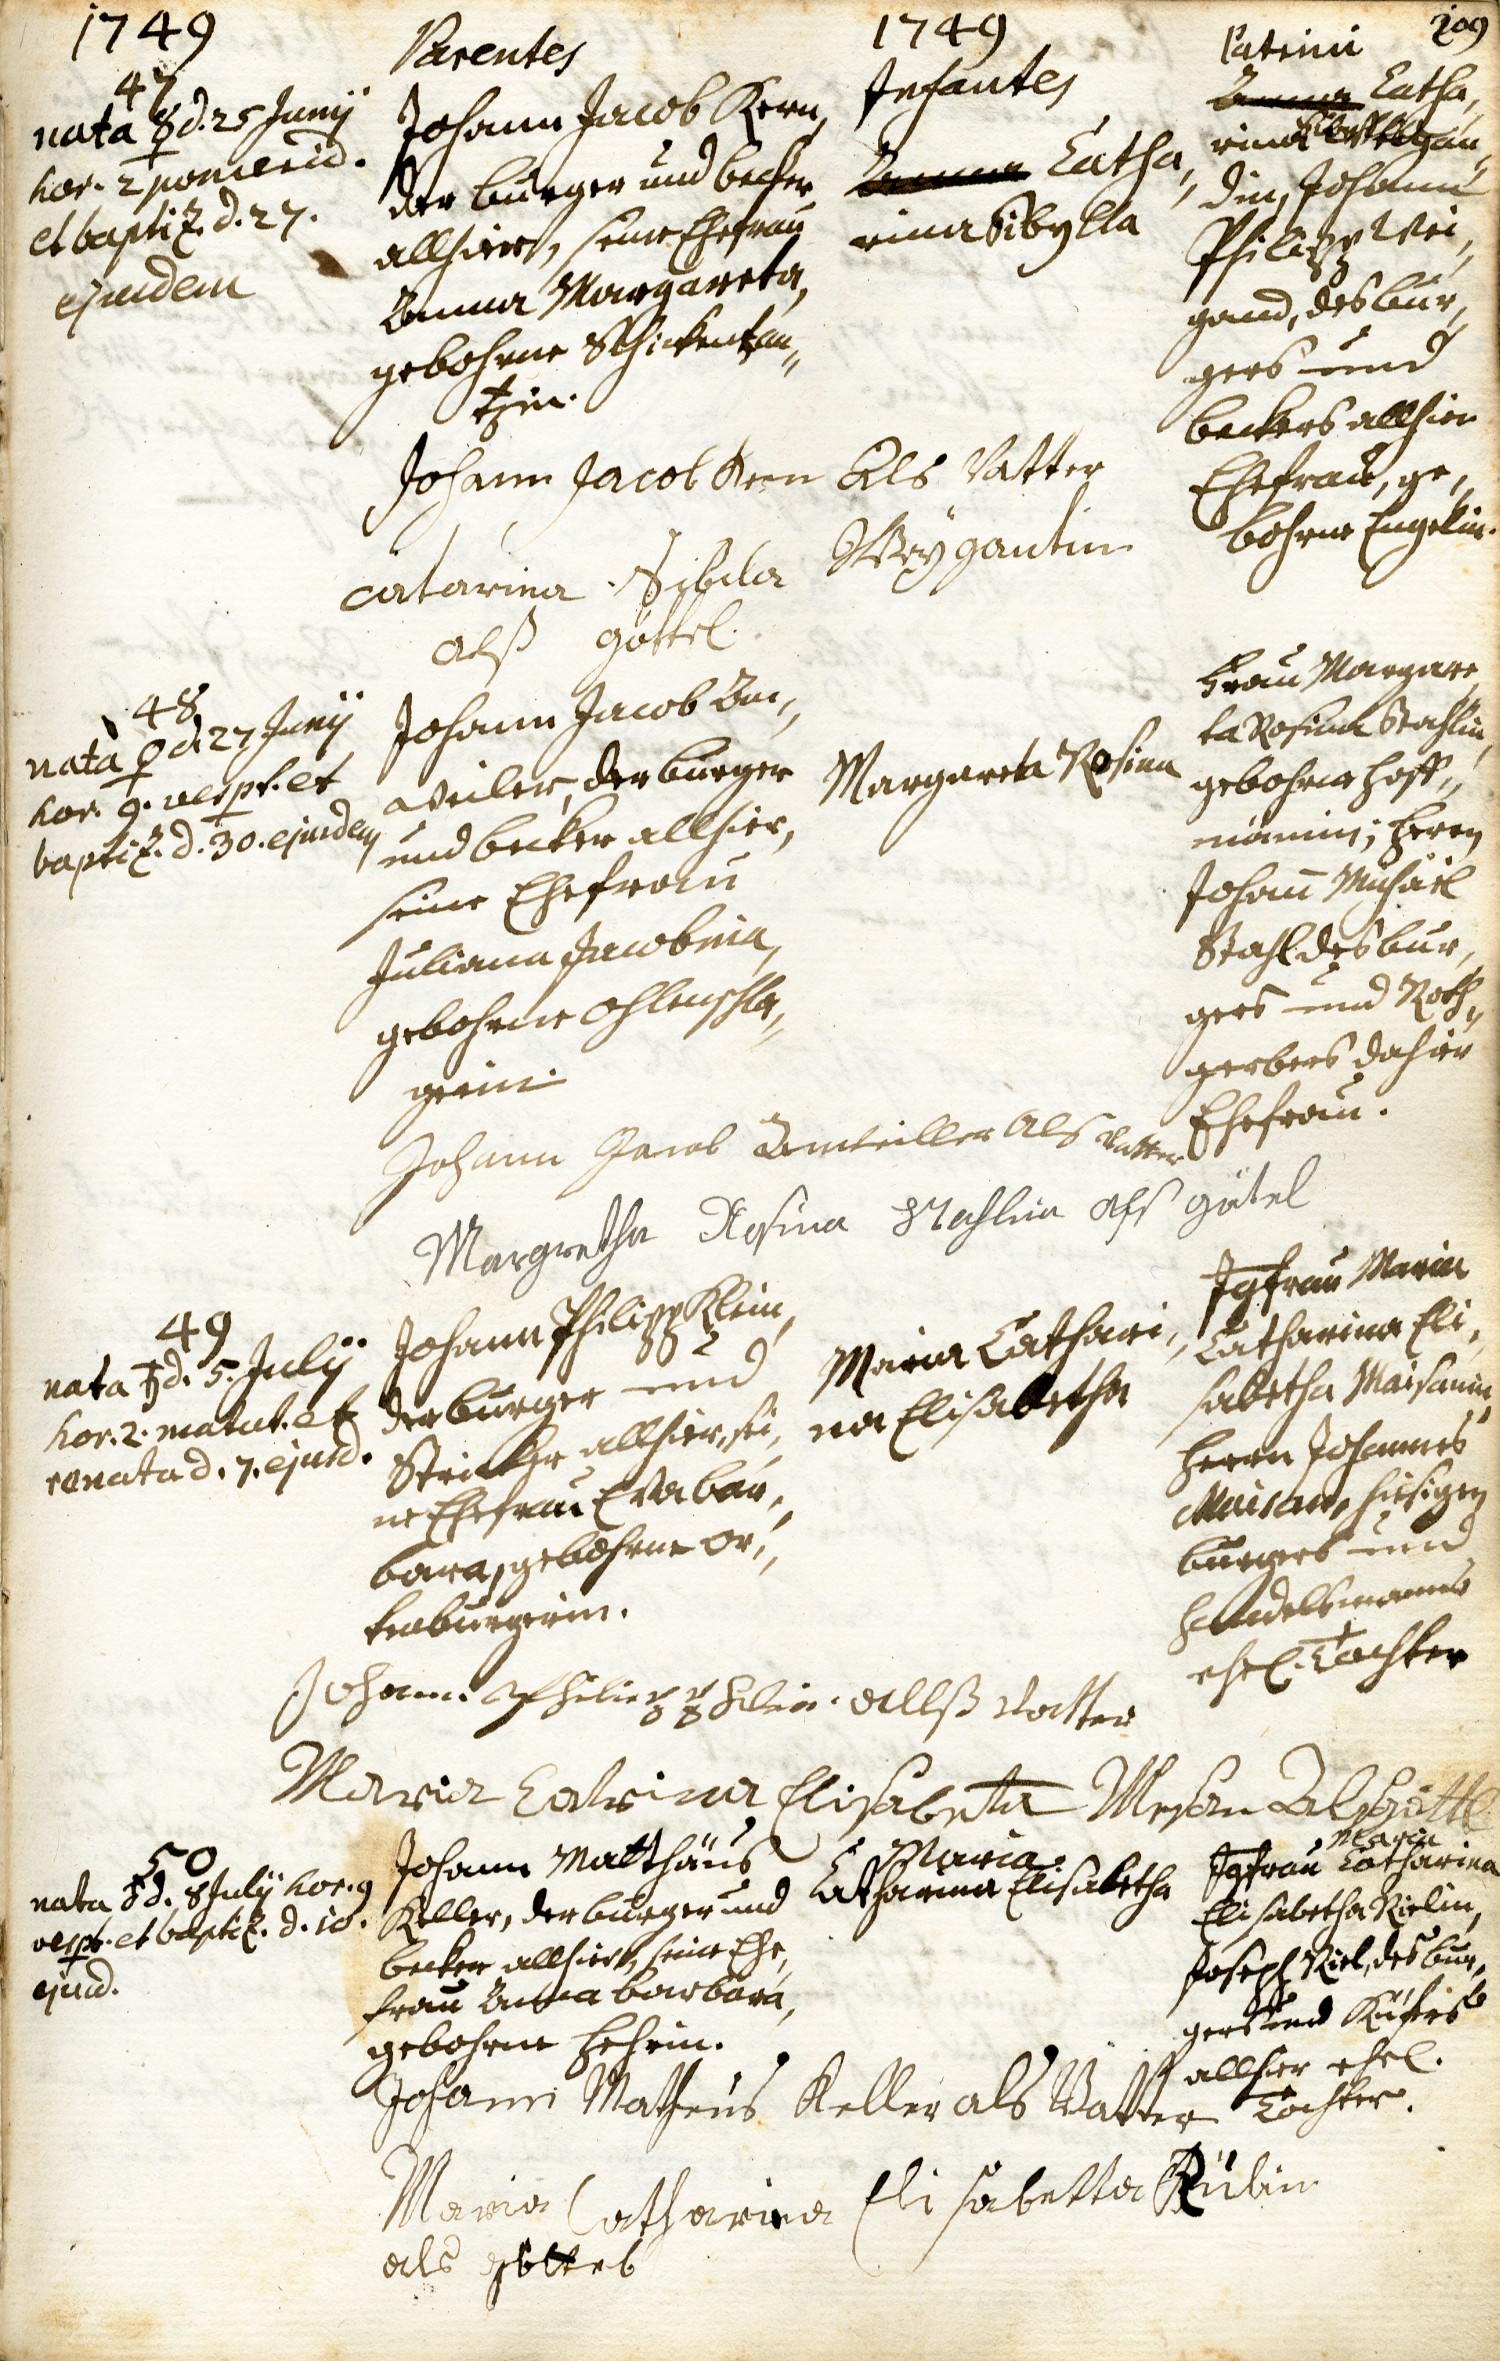 1749
1749
109
Parentes
Infantes
Patrini
47
nata ☿ d. 25 Junij
hor. 2 pomerid.
et baptiz. d. 27.
ejusdem
Johann Jacob Kern,
der burger und becker
allhier, seine Ehefrau
Anna Margareta,
gebohrne Schickentan„
tzin.
Anna Catha„
rina Sibylla
Anna Catha„
rina Sibylla Weigan„
din, Johann
Philipp Wei„
gand, des bur„
gers und
beckers allhier
Ehefrau, ge„
bohrne Engelin.
Johann Jacob Kern Als Vatter
Catarina Sibila Weygantin
alß göttel.
48
nata ♀ d. 27 Junij
hor. 9. vespt. et
baptiz. d. 30. ejusdem
Johann Jacob An„
weiler, der burger
und becker allhier,
seine Ehefrau
Juliana Jacobina,
gebohrne Ohlenschla„
gerin.
Margareta Rosina
Frau Margare„
ta Rosina Stahlin,
gebohrne Hoff„
männin; Herrn
Johann Michäel
Stahl des bur„
gers und Roth„
gerbers dahier
Ehefrau.
Johann Jacob Anweiller Als Vatter
Margretha Rosina Stahlin als götel
49
nata ♄ d. 5. July
hor. 2. matut. et
renata d. 7. ejusd.
Johann Philipp Klein,
der burger und
Stricker allhier, sei„
ne Ehefrau Eva bar„
bara, gebohrne Or„
tenburgerin.
Maria Cathari„
na Elisabetha
Jgfrau Maria
Catharina Eli„
sabetha Maisanin,
Herrn Johannes
Maisan, hiesigen
burgers und
handelsmanns
ehel. Tochter
Johann Philipp Klein allß Vatter
Maria Catrina Elisabeta Mesan Als Göttel
50
nata ☿ d. 8 July hor. 9
vespt. et baptiz. d. 10.
ejusd.
Johann Matthäus
Keller, der burger und
becker allhier, seine Ehe„
frau Anna barbara,
gebohrne
Maria
Catharina Elisabetha
Maria
Jgfrau Catharina
Elisabetha Rielin,
Joseph Riel, des bur„
gers und Küfers
allhier ehel.
Tochter.
Johann Matheus Keller als Vatter
Maria Catharina Elisabetta Rülin
als göttel